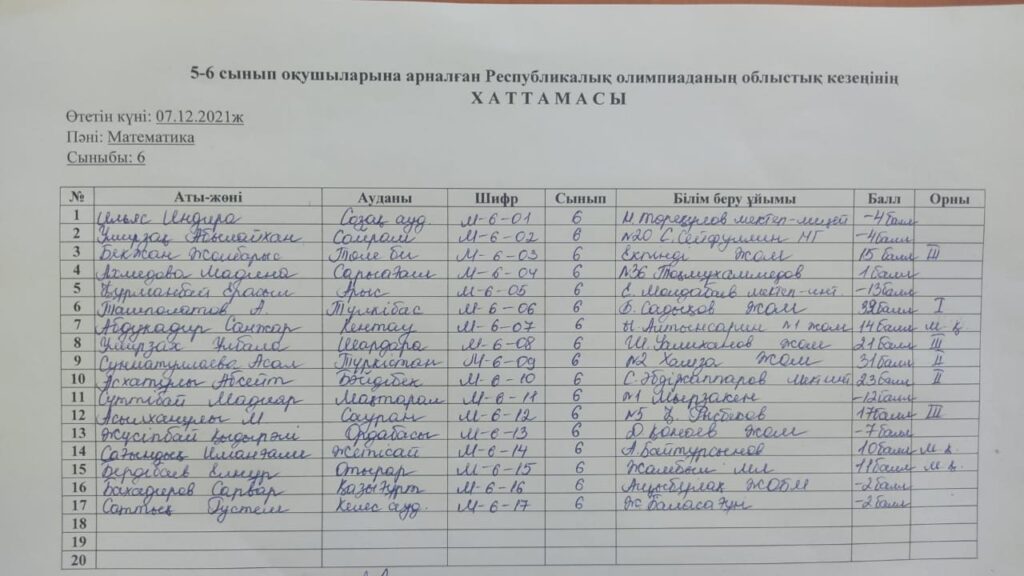 5-6 сынып оқушыларына арналған Республикалық олимпиаданың облыстық кезеңінің
ХАТТАМАСЫ
Өтетін күні: 07.12.2021ж
Пәні: Математика
Сыныбы: 6
№ Аты-жөні Ауданы Шифр Сынып Білім беру ұйымы Балл Орны
1 Ильяс Индира Созақ ауд. М-6-01 6 мектеп-лицей -4балл
2 Умирзақ Абылайхан Сайрам М-6-02 6 №20 С.Сейфуллин НГ -4балл
3 Бекжан Жолбарыс Төле би М-6-03 6 Екпінді ЖОМ 15 балл III
4 Ахмедова Мадина Сарыағаш М-6-04 6 №36 Тошмухаммедов 1балл
5 Құрманбай Ерасыл Арыс М-6-05 6 мектеп-инт. -13балл
6 Ташполатов А. Түлкібас М-6-06 6 Садықов ЖОМ балл I
7 Абдукадир Санжар Кентау М-6-07 6 Ы.Алтынсарин №1 жом 14балл м.қ.
8 Умирзах Улбала Шардара М-6-08 6 Ш.Уәлиханов ЖОМ 21балл III
9 Асал Түркістан М-6-09 6 №2 Хамза ЖОМ 31балл II
10 Асхатұлы Бәйдібек М-6-10 6 С.Әбдіжаппаров 23балл II
11 Сүттібай Мадияр Мақтарал М-6-11 6 №1 Мырзакен -12балл
12 Асылханұлы М Сауран М-6-12 6 №5 17балл III
13 Жүсіпбай Қыдырәлі Ордабасы М-6-13 6 Д.Қонаев ЖОМ -7балл
14 Сағындық Иманғали Жетісай М-6-14 6 А.Байтурсынов 10балл м.қ.
15 Бердібаев Елнұр Отырар М-6-15 6 Жамбыл 11балл м.қ.
16 Бахадиров Сарвар Қазығұрт М-6-16 6 Ащыбұлақ ЖОБМ -2балл
17 Рүстем Келес ауд. М-6-17 6 Ж Баласағұн -2балл
18
19
20